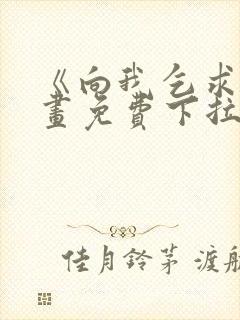 《向我乞求
畫免費下拉
佳月鈴茅 渡航